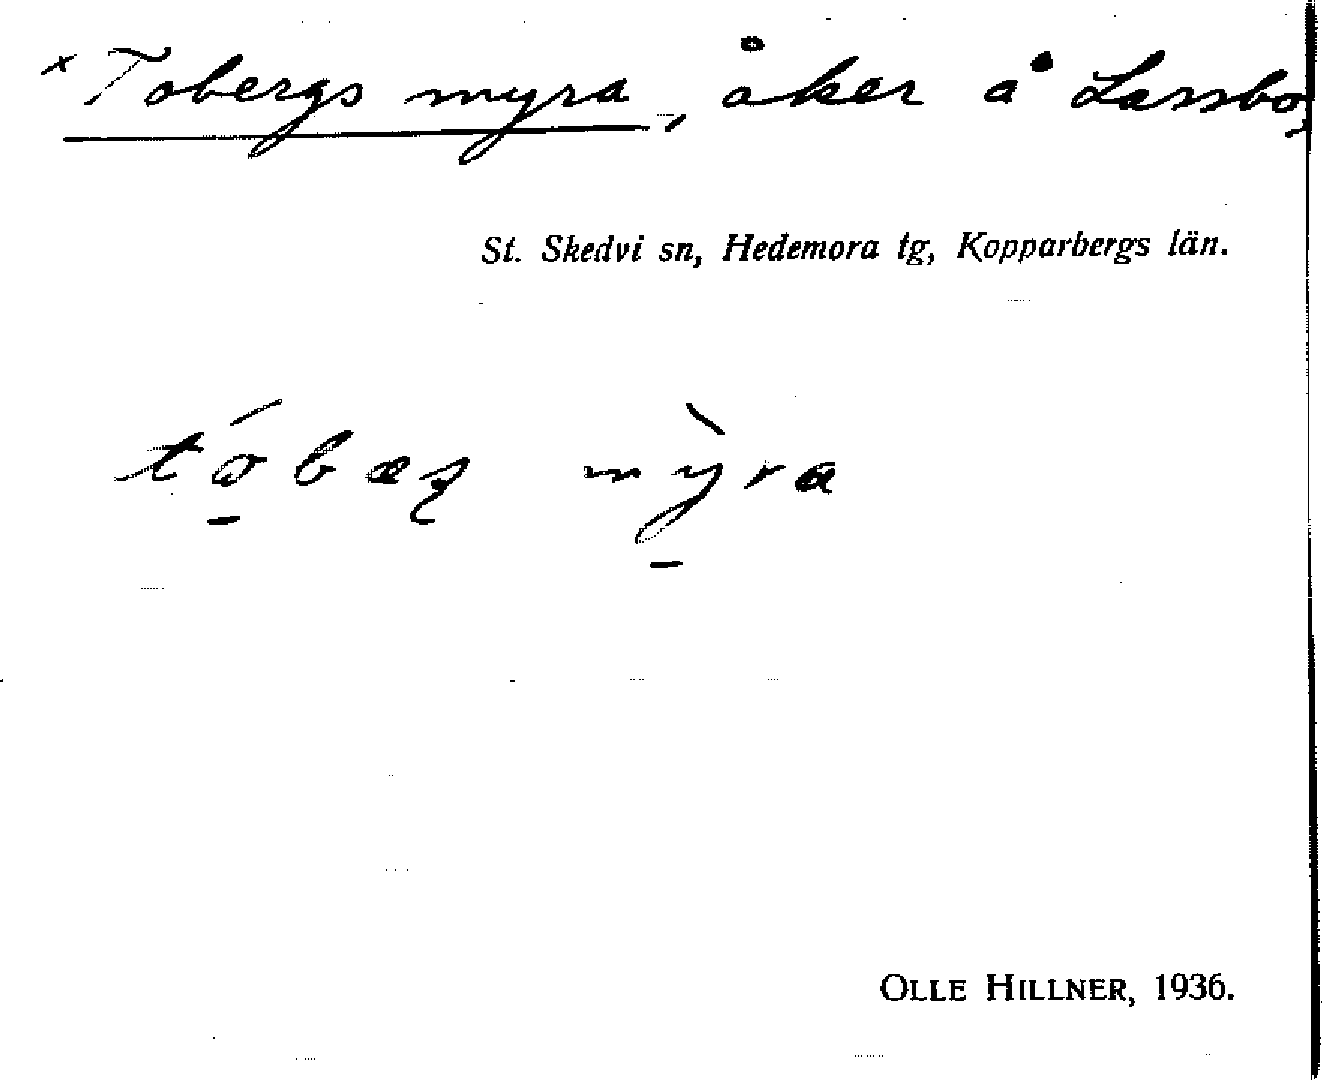 x Tobergs myra, åker å Lassbo,
St. Skedvi sn, Hedemora tg, Kopparbergs län.
tóbæʂ mỳra
OLLE HILLNER, 1936.